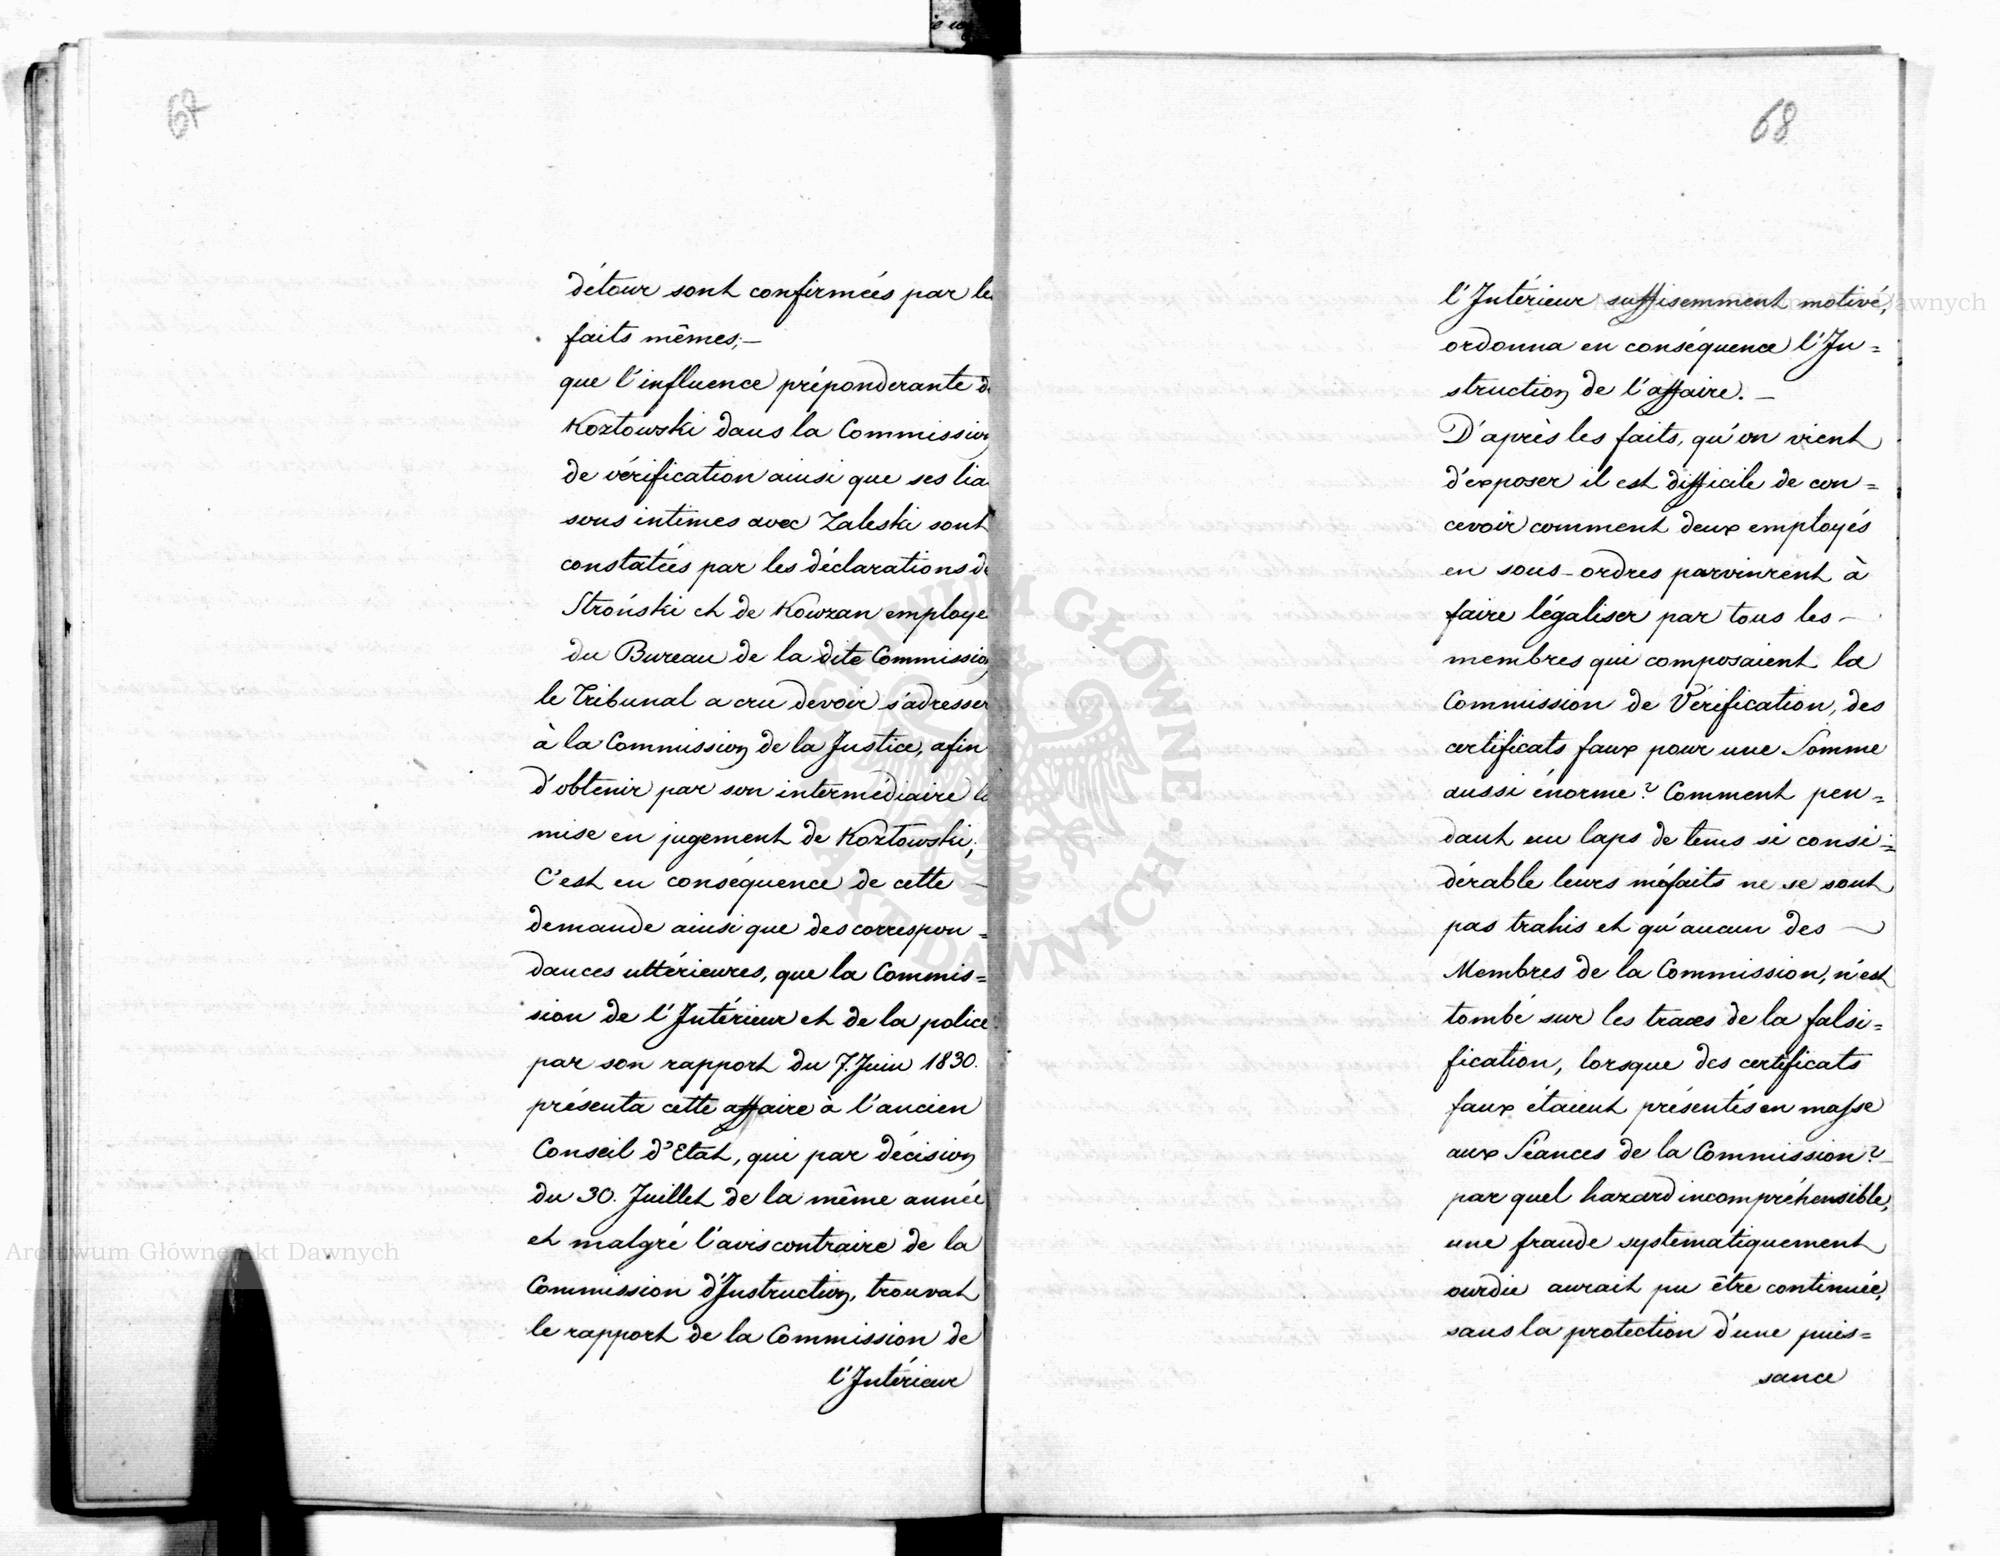 67
détour sont confirmées par les
faits mêmes;—
que l'influence préponderante de
Kozłowski dans la Commission
de vérification ainsi que ses lia
sons intimes avec Zaleski sont
constatées par les déclarations de
Stroński et de Kowzan employe
du Bureau de la dite Commission
le Tribunal a cru devoir s'adresser
à la Commission de la Justice, afin
d'obtenir par son intermédiaire la
mise en jugement de Kozłowski;
C'est en conséquence de cette —
demande ainsi que des correspon=
dances ultérieures, que la Commis=
sion de l'Intérieur et de la police
par son rapport du 7. Juin 1830.
présenta cette affaire à l'ancien
Conseil d'Etat, qui par décision
du 30. Juillet de la même année
et malgré l'avis contraire de la
Commission d'Instruction, trouvat
le rapport de la Commission de
l'Intérieur
68
l'Intérieur suffisemment motivé,
ordonna en conséquence l'In=
struction de l'affaire. —
D'après les faits, qu'on vient
d'exposer il est difficile de con=
cevoir comment deux employés
en sous-ordres parvinrent à
faire légaliser par tous les —
membres qui composaient la
Commission de Vérification, des
certificats faux pour une Somme
aussi énorme? Comment pen=
dant un laps de tems si consi=
dérable leurs méfaits ne se sont
pas trahis et qu'aucun des —
Membres de la Commission, n'est
tombé sur les traces de la falsi=
fication, lorsque des certificats
faux étaient présentés en masse
aux Séances de la Commission?
par quel hazard incompréhensible,
une fraude systematiquement
ourdie aurait pu être continuée,
sans la protection d'une puis=
sance
Archiwum Główne Akt Dawnych
ARCHIWUM GŁÓWNE · AKT DAWNYCH ·
Archiwum Główne Akt Dawnych